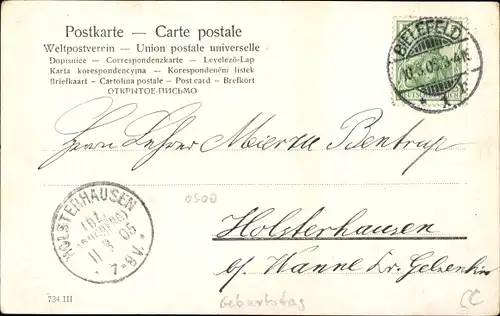 Postkarte — Carte postale
Weltpostverein — Union postale universelle
Dopisnice — Correspondenzkarte — Levelező-Lap
Karta korespondencyjna — Korespondenční lístek
Briefkaart — Cartolina postale — Post card — Brefkort
ОТКРЫТОЕ-ПИСЬМО
BIELEFELD
10.3.05. 3-4N.
Herrn Lehrer Meier zu Bentrup
HOLSTERHAUSEN
11 3 05
7-8V.
0500
Holsterhausen
b/ Wanne Kr. Gelsenkir
734 III
Geburtstag